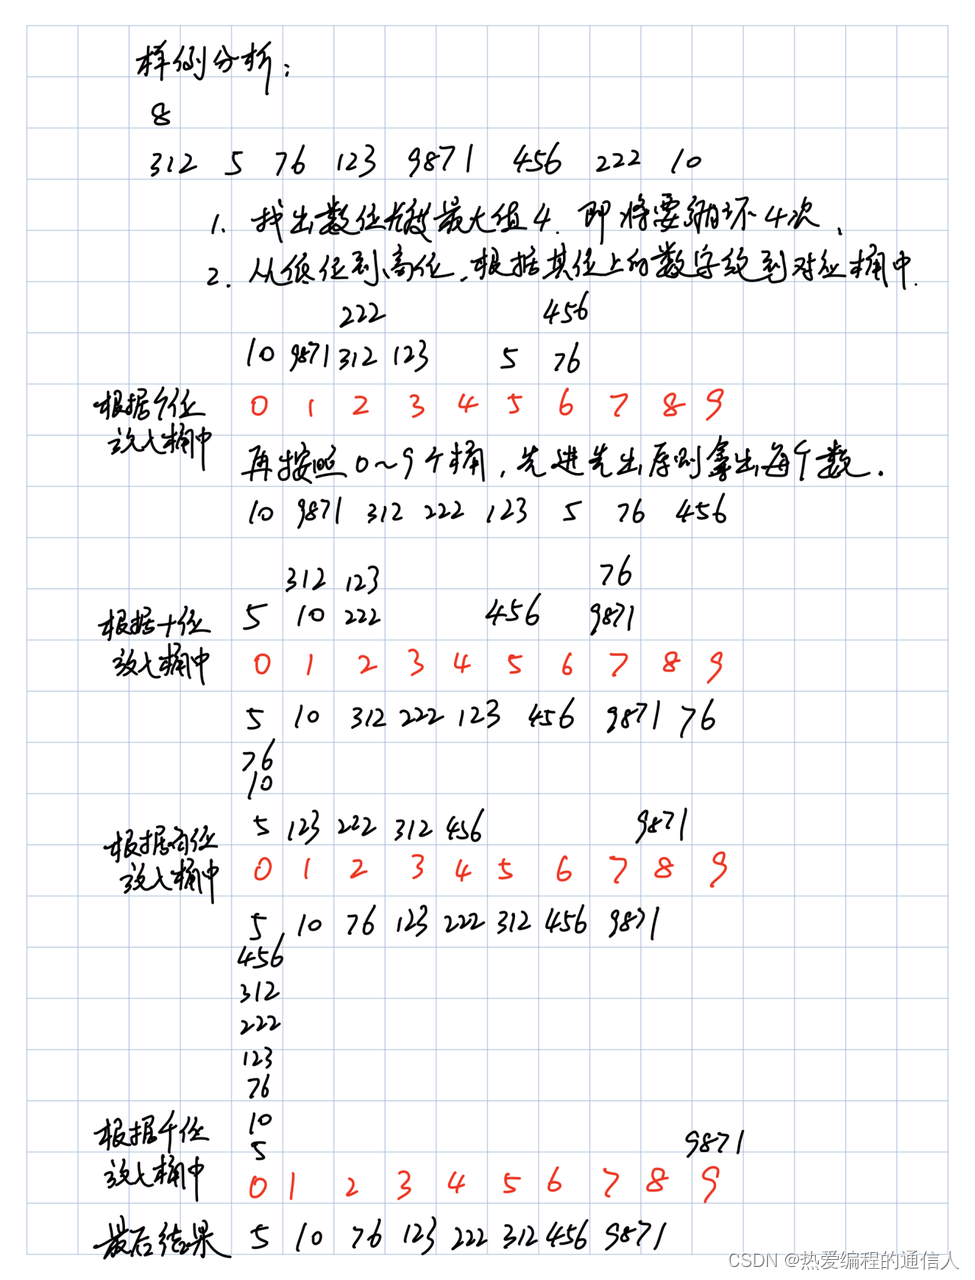 样例分析:
8
312 5 76 123 9871 456 222 10
1. 找出数位长度最大值4. 即将要循环4次.
2. 从低位到高位,根据其位上的数字给到对应桶中.
222 456
10 9871 312 123 5 76
根据个位 0 1 2 3 4 5 6 7 8 9
放入桶中
再按照0~9个桶,先进先出原则拿出每个数.
10 9871 312 222 123 5 76 456
312 123 76
5 10 222 456 9871
根据十位
放入桶中 0 1 2 3 4 5 6 7 8 9
5 10 312 222 123 456 9871 76
76
10
5 123 222 312 456 9871
根据百位
放入桶中 0 1 2 3 4 5 6 7 8 9
5 10 76 123 222 312 456 9871
456
312
222
123
76
10
根据千位
5 9871
放入桶中 0 1 2 3 4 5 6 7 8 9
最后结果 5 10 76 123 222 312 456 9871
CSDN @热爱编程的通信人